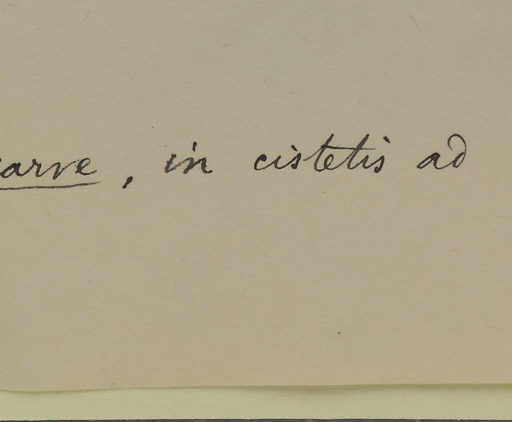 arve, in cistetis ad